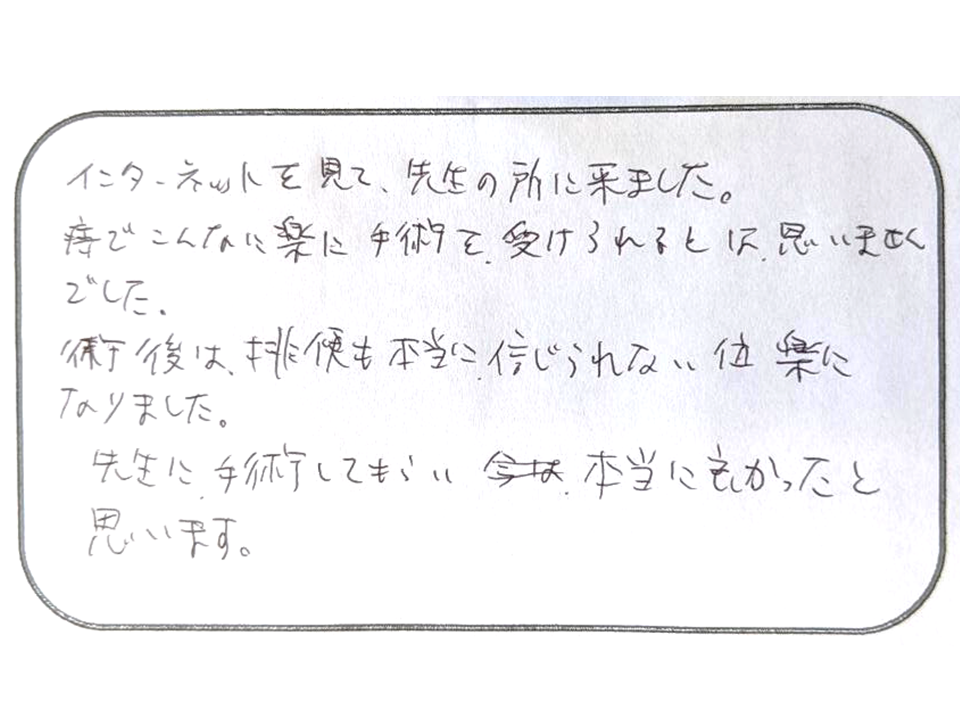 インターネットを見て、先生の所に来ました。
痔でこんなに楽に手術を、受けられるとは、思いません
でした。
術後は、排便も本当に、信じられない位 楽に
なりました。
先生に、手術してもらい 今は、本当に良かったと
思います。